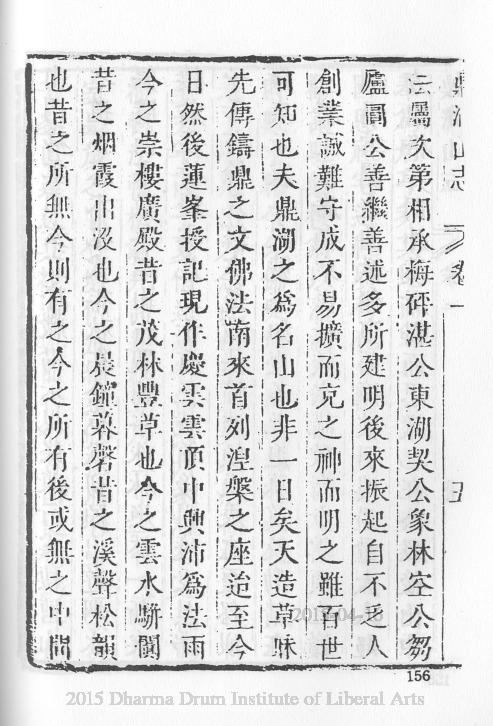 鼎湖山志 卷一 五
法屬次第相承梅砰湛公東湖契公象林空公芻
廬圓公善繼善述多所建明後來振起自不乏人
創業誠難守成不易擴而充之神而明之雖百世
可知也夫鼎湖之為名山也非一日矣天造草昧
先傳鑄鼎之文佛法南來首列湼槃之座迨至今
日然後蓮峯授記現作慶雲雲頂中興沛為法雨
今之崇樓廣殿昔之茂林豐草也今之雲水駢闐
昔之烟霞出沒也今之晨鐘暮磬昔之溪聲松韻
也昔之所無今則有之今之所有後或無之中間
156
2015 Dharma Drum Institute of Liberal Arts